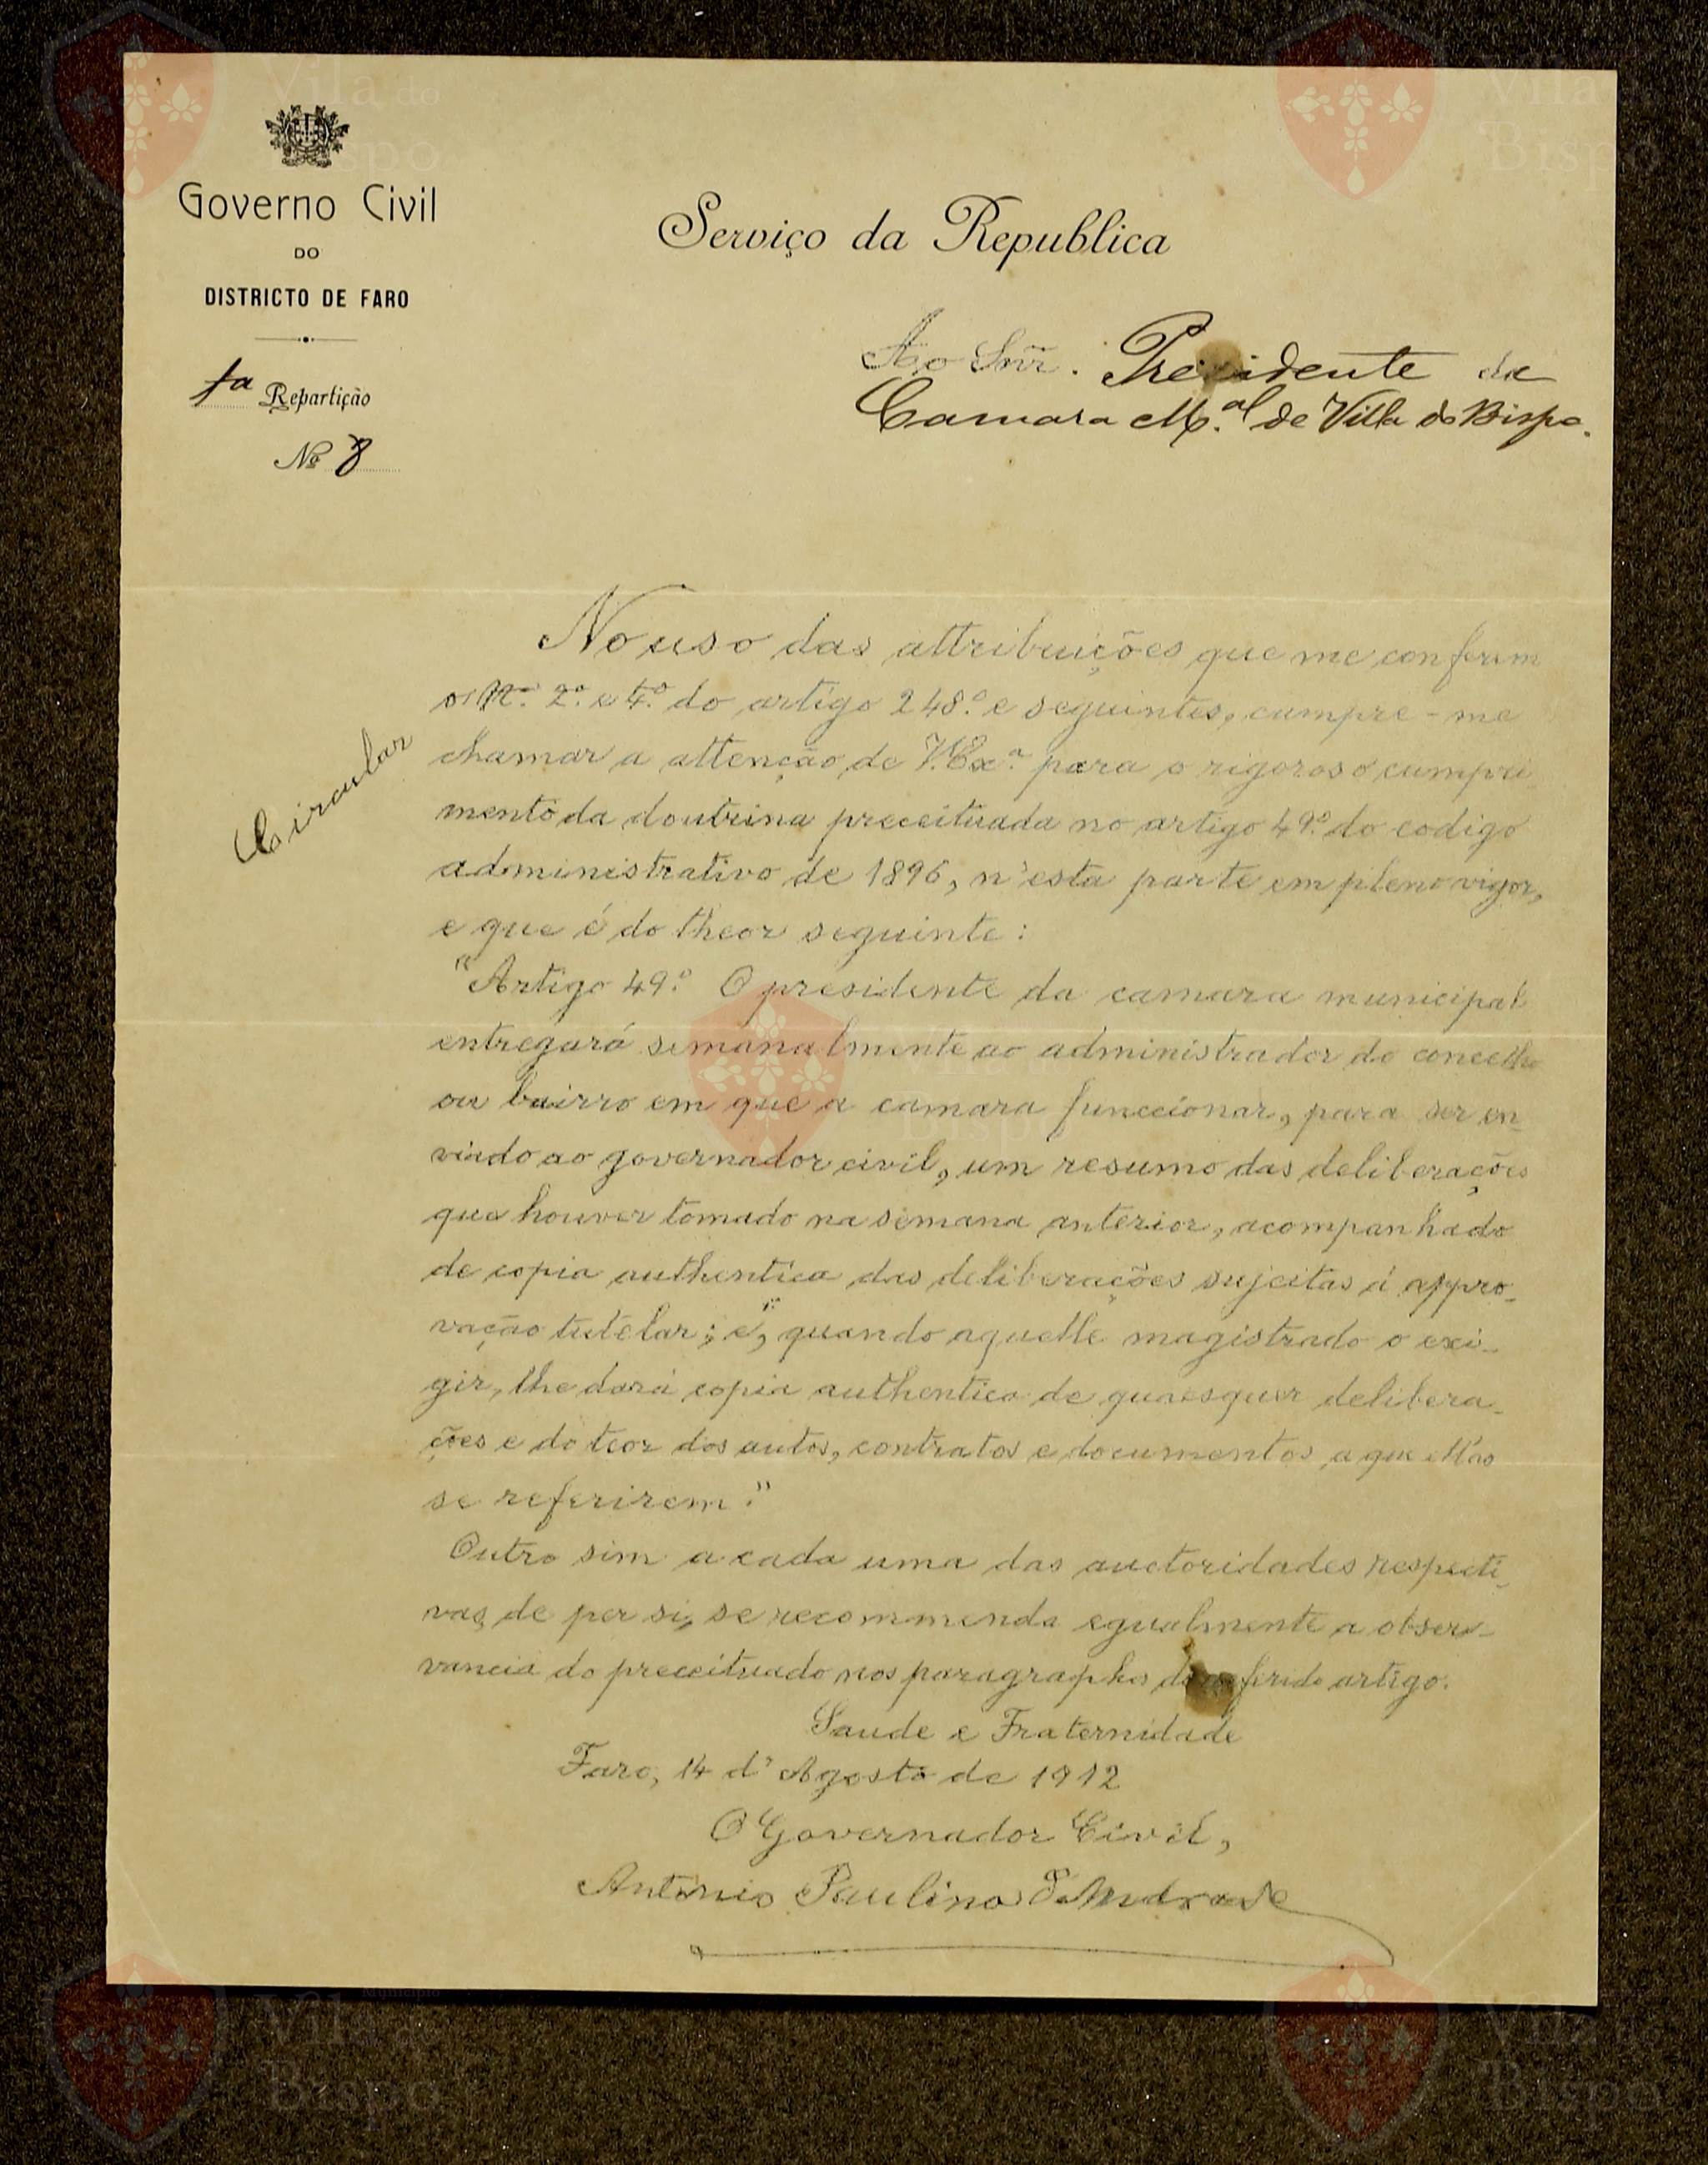 Governo Civil
DO
DISTRICTO DE FARO
1a Repartição
No 8
Serviço da Republica
Ao Snr. Presidente da
Camara M.al de Villa do Bispo.
Circular
No uso das attribuições que me conferem
os Nos. 2.o e 4.o do artigo 248.o e seguintes, cumpre-me
chamar a attenção de V. Exa. para o rigoroso cumpri
mento da doutrina preceituada no artigo 49.o do codigo
administrativo de 1896, n'esta parte em pleno vigor,
e que é do theor seguinte:
"Artigo 49.o O presidente da camara municipal
entregará semanalmente ao administrador do concelho
ou bairro em que a camara funccionar, para ser en-
viado ao governador civil, um resumo das deliberações
que houver tomado na semana anterior, acompanhado
de copia authentica das deliberações sujeitas á appro-
vação tutelar; e, quando aquelle magistrado o exi-
gir, lhe dará copia authentica de quaesquer delibera-
ções e do teor dos autos, contratos e documentos a que ellas
se referirem."
Outro sim a cada uma das auctoridades respecti-
vas, de per si, se recommenda egualmente a obser-
vancia do preceituado nos paragraphos do referido artigo.
Saude e Fraternidade
Faro, 14 d'Agosto de 1912
O Governador Civil,
Antonio Paulino d'Andrade
Vila do
Bispo
Vila do
Bispo
Vila do
Bispo
Município
Vila do
Bispo
Vila do
Bispo